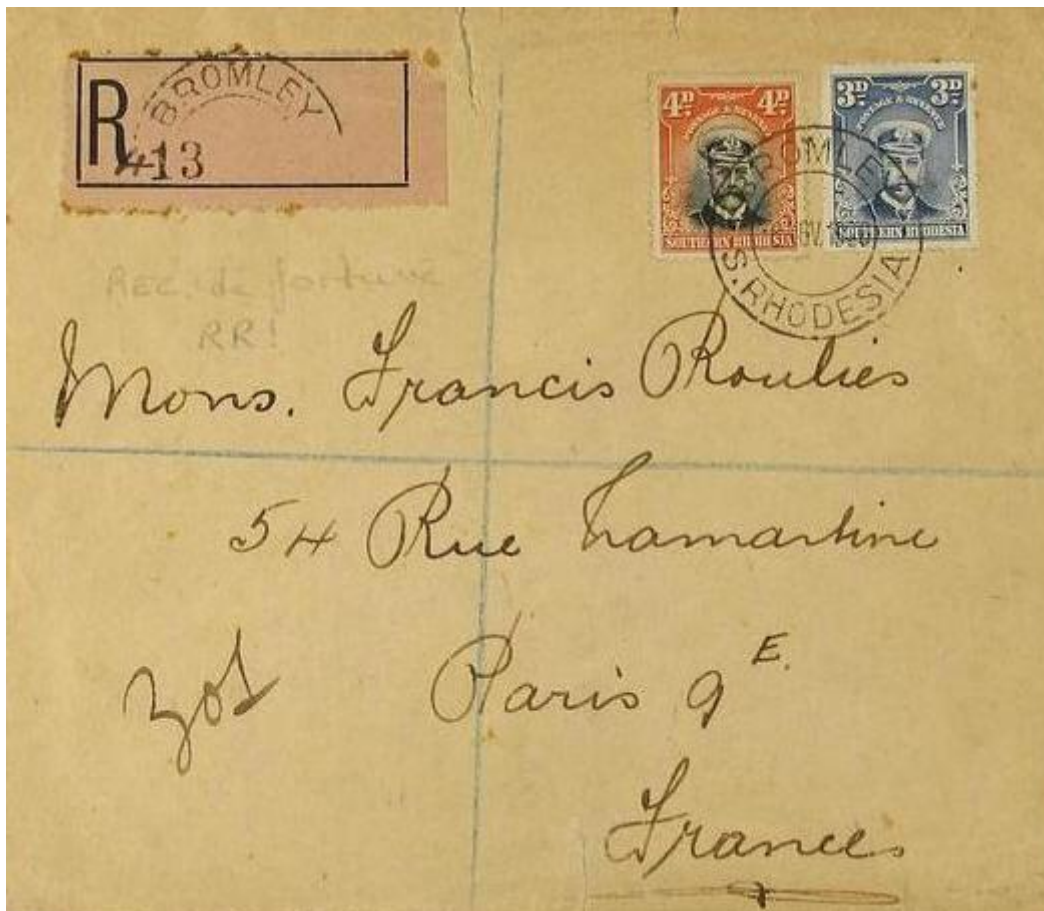 R
BROMLEY
413
4D 4D
POSTAGE & REVENUE
SOUTHERN RHODESIA
3D 3D
POSTAGE & REVENUE
SOUTHERN RHODESIA
BROMLEY
S. RHODESIA
REC. de fortune
RR!
Mons. Francis Roulies
54 Rue Lamartine
Paris 9E.
France